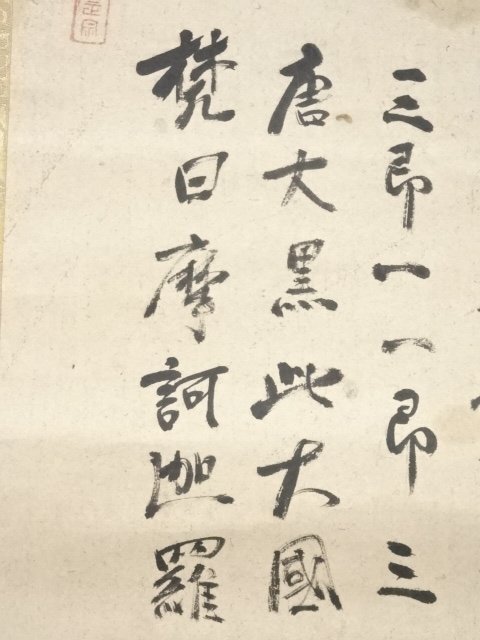 三即一一即三
唐大黒此大國
梵曰摩訶迦羅